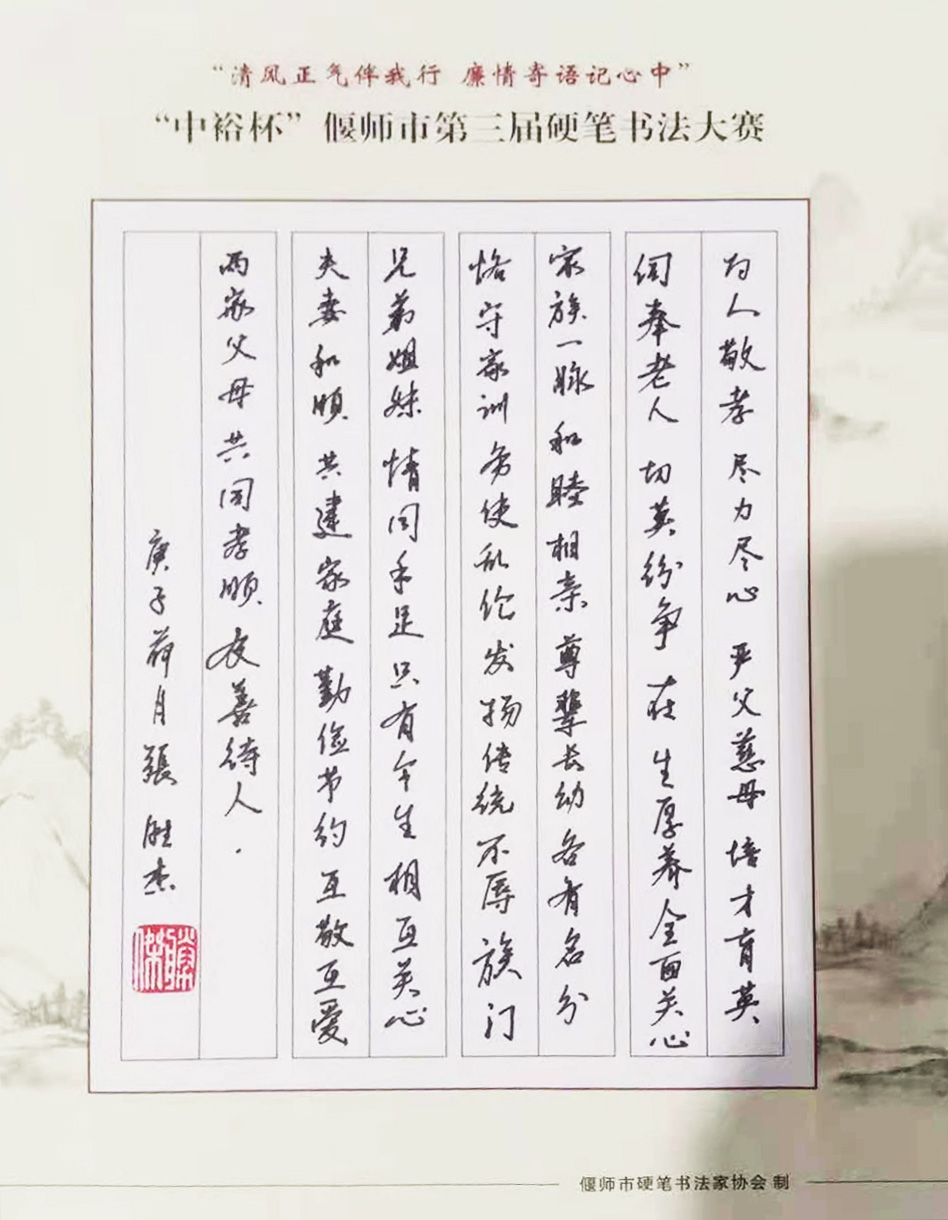 “清风正气伴我行 廉情寄语记心中”
“中裕杯”偃师市第三届硬笔书法大赛
为人敬孝 尽力尽心 严父慈母 培才育英
伺奉老人 切莫纷争 在生厚养 全面关心
家族一脉 和睦相亲 尊辈长幼 各有名分
恪守家训 勿使乱伦 发扬传统 不辱族门
兄弟姐妹 情同手足 只有今生 相互关心
夫妻和顺 共建家庭 勤俭节约 互敬互爱
两家父母 共同孝顺 友善待人.
庚子荷月 张胜杰
胜杰
偃师市硬笔书法家协会 制